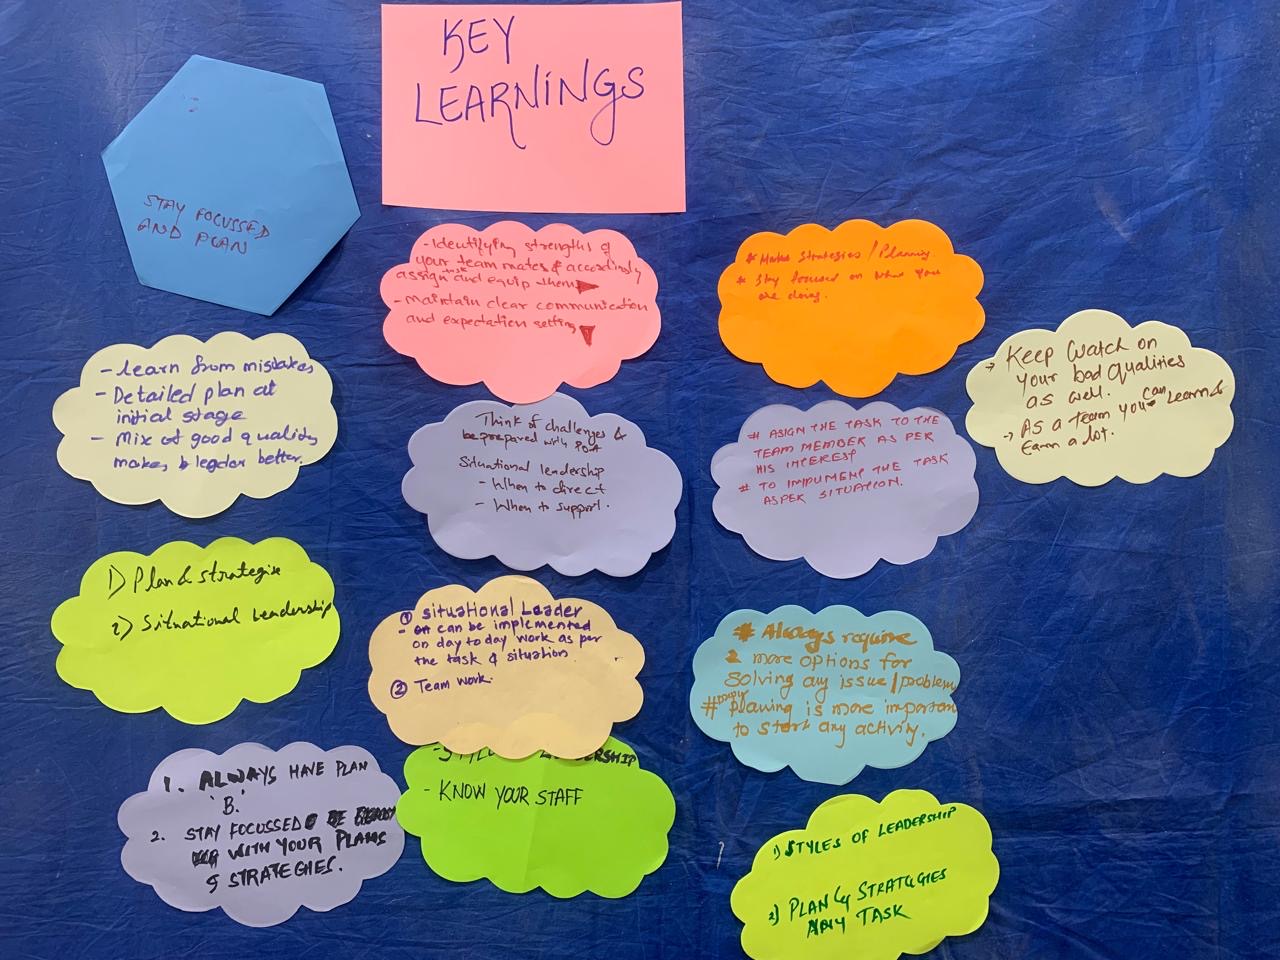 KEY
LEARNINGS
STAY FOCUSSED
AND PLAN
- Identifying strengths of
your team mates & accordingly
assign task and equip them
- maintain clear communication
and expectation setting
# Make strategies / Planning.
# Stay focused on what you
are doing.
- Learn from mistakes
- Detailed plan at
initial stage
- Mix of good quality
makes leader better.
Think of challenges &
be prepared with
Situational leadership
- When to direct
- When to support.
# ASIGN THE TASK TO THE
TEAM MEMBER AS PER
HIS INTEREST
# TO IMPLIMENT THE TASK
ASPER SITUATION.
→ Keep Watch on
your bad Qualities
as well.
→ As a team you can Learn &
Earn a lot.
1) Plan & strategise
2) Situational Leadership
① Situational Leader
- can be implemented
on day to day work as per
the task & situation.
② Team work.
# Always require
2 more options for
solving any issue/problem
# planing is more important
to start any activity.
1. ALWAYS HAVE PLAN
'B.'
2. STAY FOCUSSED
WITH YOUR PLANS
& STRATEGIES.
LEADERSHIP
- KNOW YOUR STAFF
1) STYLES OF LEADERSHIP
2) PLAN & STRATEGIES
ANY TASK